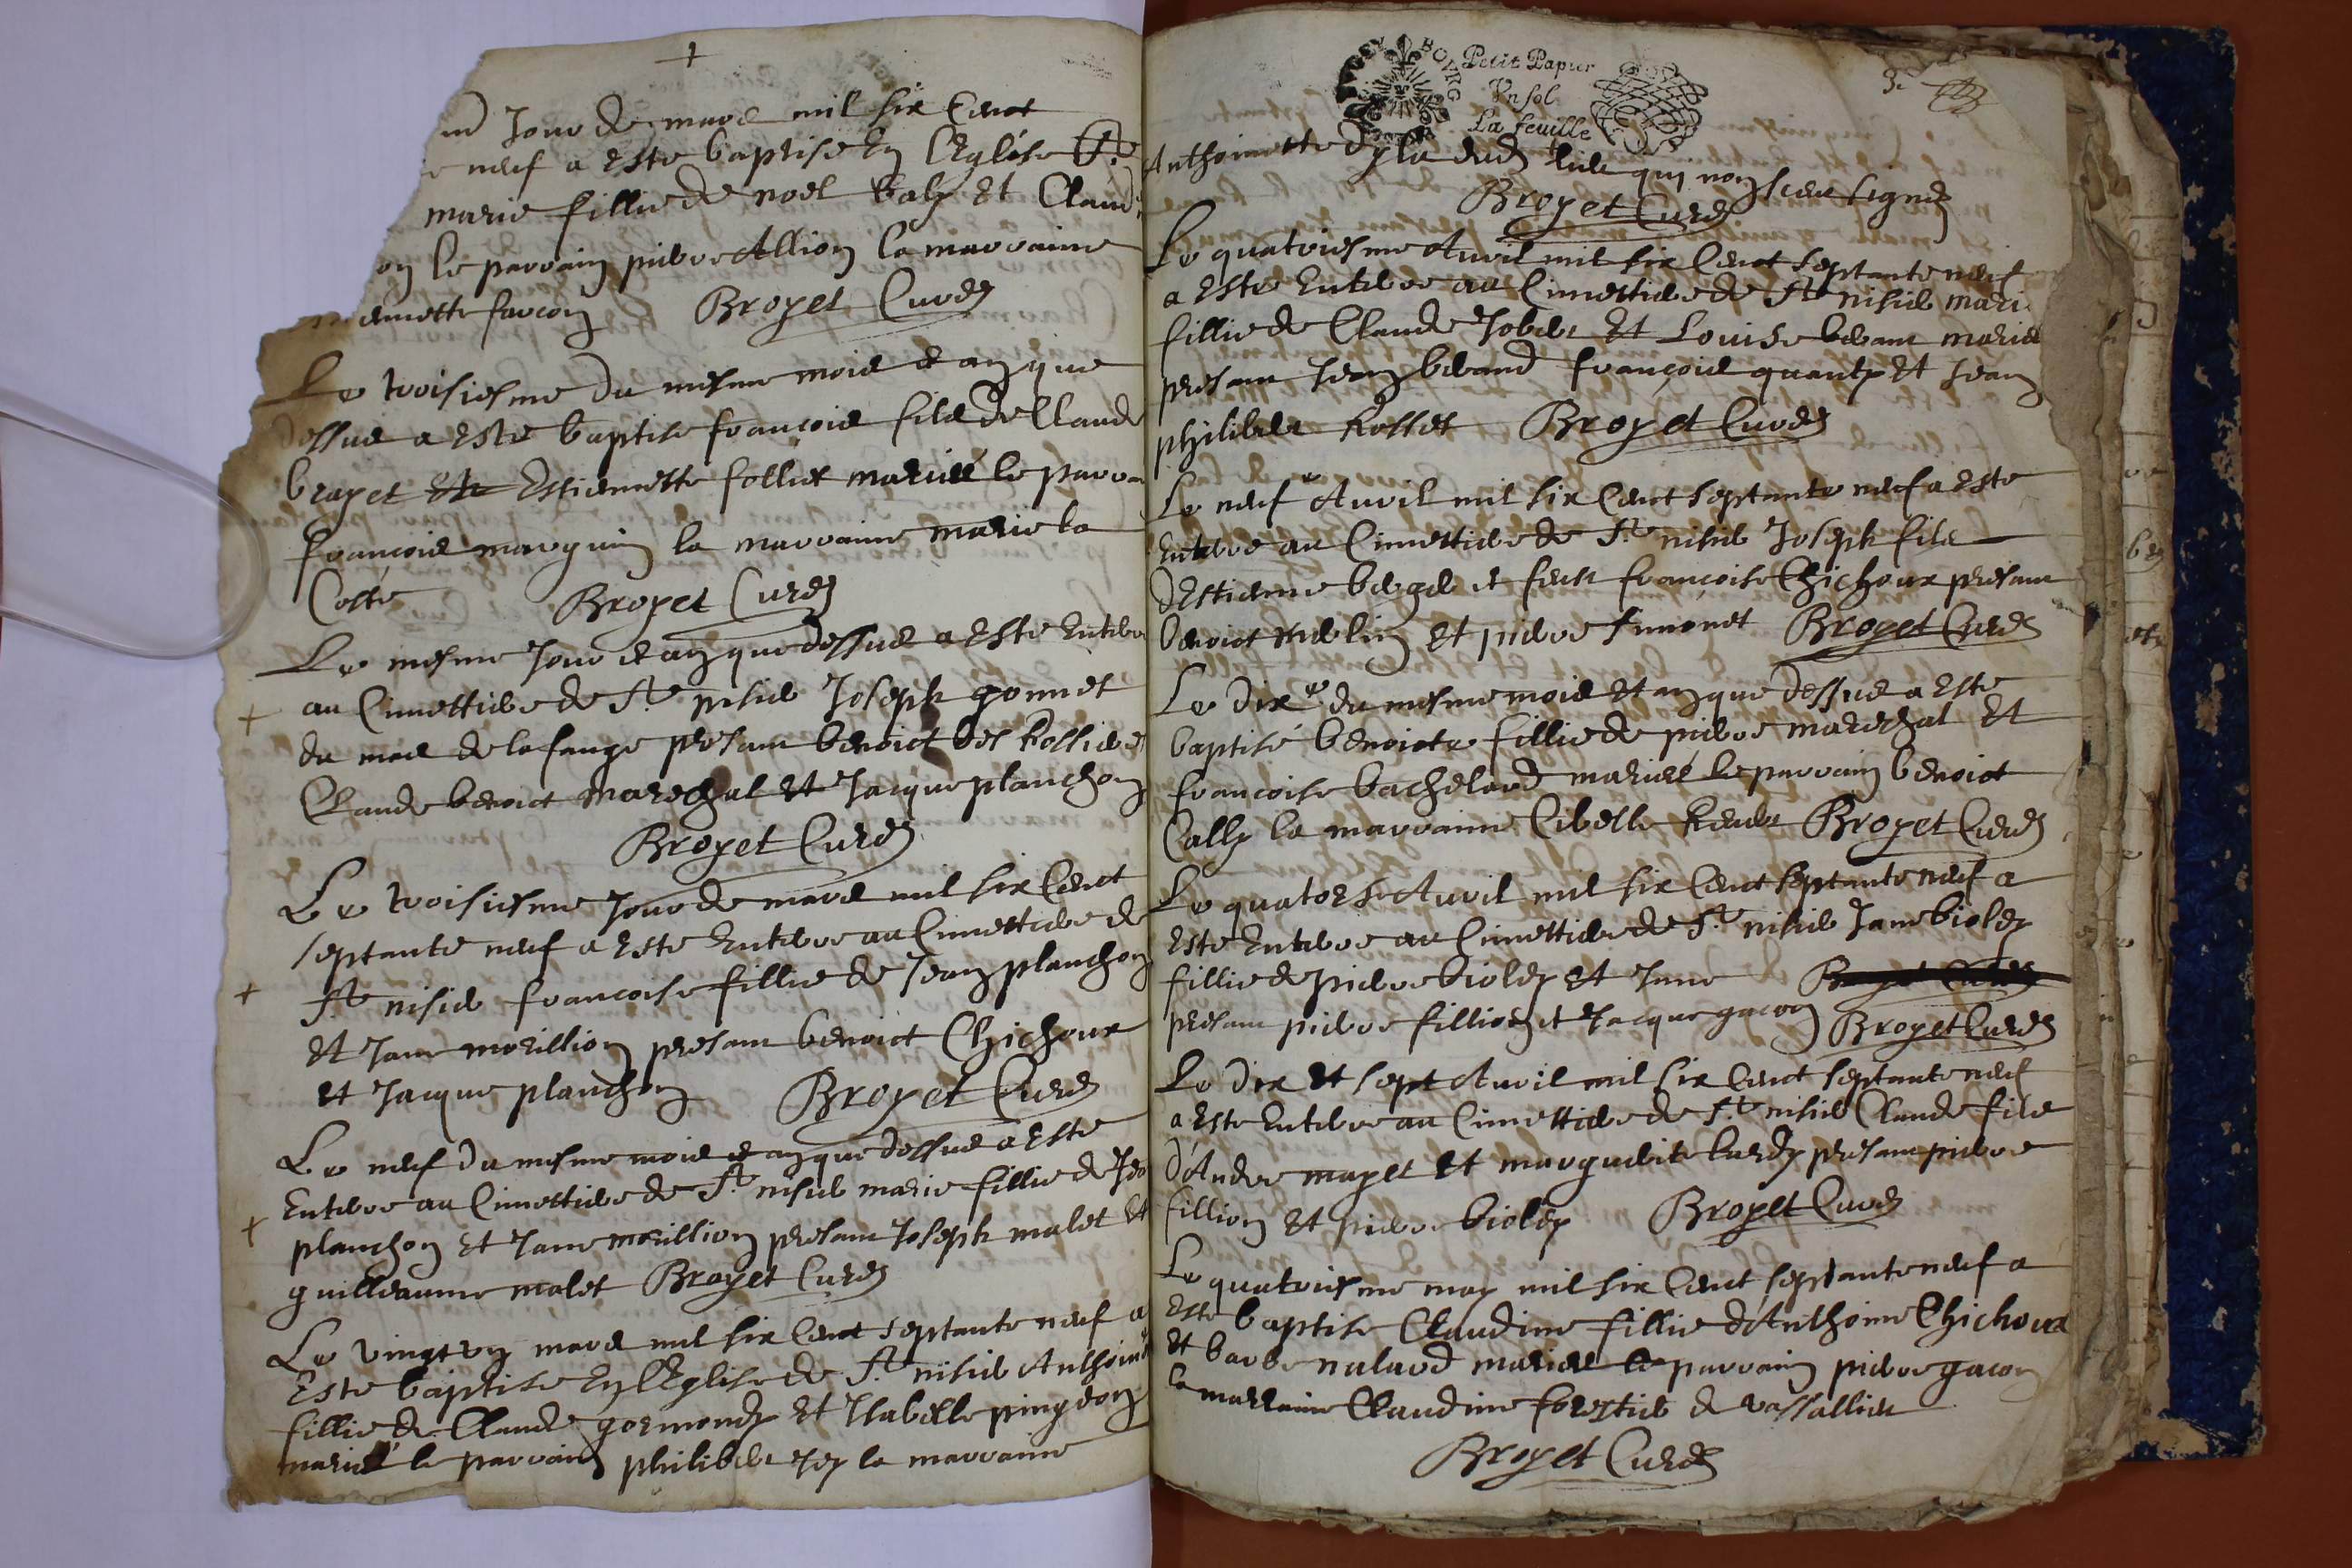 Jour de mars mil six Cent
neuf a este baptise En l'Eglise St
marie fillie de noel baly Et Claud
le parrain pierre Allion la marraine
farcon Broyet Curé
Le troisiesme du mesme mois et an que
dessus a este baptise françois fils de Claude
brayet Estiennette follier mariés le parra
françois marguin la marraine marie la
Coste Broyet Curé
Le mesme Jour et an que dessus a este Enterre
au Cimettiere de St nisier Joseph gonnet
du mas de la fange presant benoict
Claude benoict Mareschal Et Jacque planchon
Broyet Curé
Le troisiesme Jour de mars mil six Cent
septante neuf a este Enterree au Cimettiere de
St nisier francoise fillie de Jean planchon
Et Jane morillion presant benoict Chichoux
et Jacque planchon Broyet Curé
Le neuf du mesme mois et an que dessus a este
Enterree au Cimettiere de St nisier marie fillie de Jea
planchon Et Jane morillion presant Joseph malet Et
guilleaume malet Broyet Curé
Le vingt un mars mil six Cent septante neuf a
Este baptise En l'Eglise de St nisier Anthoinet
fillie de Claude gormond Et Isabelle pingeon
mariés le parrain philibert Jey la marraine
BOURG
Petit Papier
Un sol
La feuille
3e
Anthoinette dudit lieu qui non sceu signer
Broyet Curé
Le quatriesme Avril mil six Cent septante neuf
a este Enterree au Cimettiere de St nisier mari
fillie de Claude Jober Et Louise beraud mariés
presant Jean beraud françois quanty Et Jean
philibert Rosset Broyet Curé
Le neuf e Avril mil six Cent septante neuf a este
Enterre au Cimettiere de St nisier Joseph fils
d'Estienne berger et feue françoise Chichoux presant
benoict Et pierre simonet Broyet Curé
Le dix e du mesme mois Et an que dessus a este
baptisé benoicte fillie de pierre mareschal Et
francoise bachelard mariés le parrain benoict
Cally la marraine Cibelle Broyet Curé
Le quatorse Avril mil six Cent septante neuf a
este Enterree au Cimettiere de St nisier Jane bioley
fillie de pierre bioley Et Jane
presant pierre fillion et Jacque gacon Broyet Curé
Le dix Et sept Avril mil six Cent septante neuf
a este Enterre au Cimettiere de St nisier Claude fils
d'Andre mayet Et marguerite presant pierre
fillion Et pierre bioley Broyet Curé
Le quatriesme may mil six Cent septante neuf a
este baptise Claudine fillie d'Anthoine Chichoux
Et barbe nalard mariés le parrain pierre gacon
la marraine Claudine forestier de vassallieu
Broyet Curé